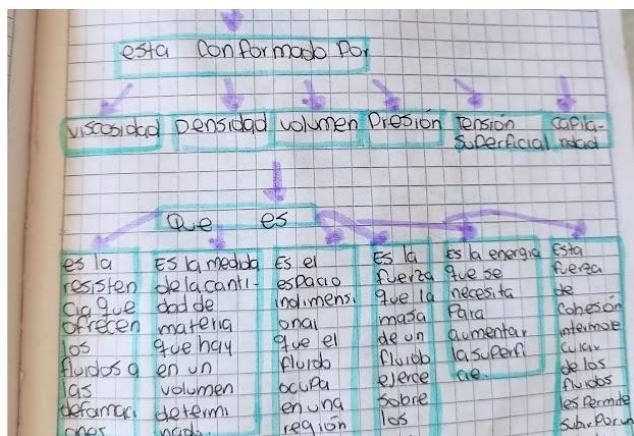 esta conformado por
viscosidad
Densidad
volumen
Presión
Tensión
superficial
capila-
ridad
Que es
es la
resisten
cia que
ofrecen
los
fluidos a
las
deformaci
ones
Es la medida
de la canti-
dad de
materia
que hay
en un
volumen
determi
nado.
Es el
espacio
indimensi
onal
que el
fluido
ocupa
en una
región
Es la
fuerza
que la
masa
de un
fluido
ejerce
sobre
los
Es la energia
que se
necesita
Para
aumentar
la superfi
cie.
Esta
fuerza
de
cohesión
intermole
cular
de los
fluidos
les Permite
subir Por un